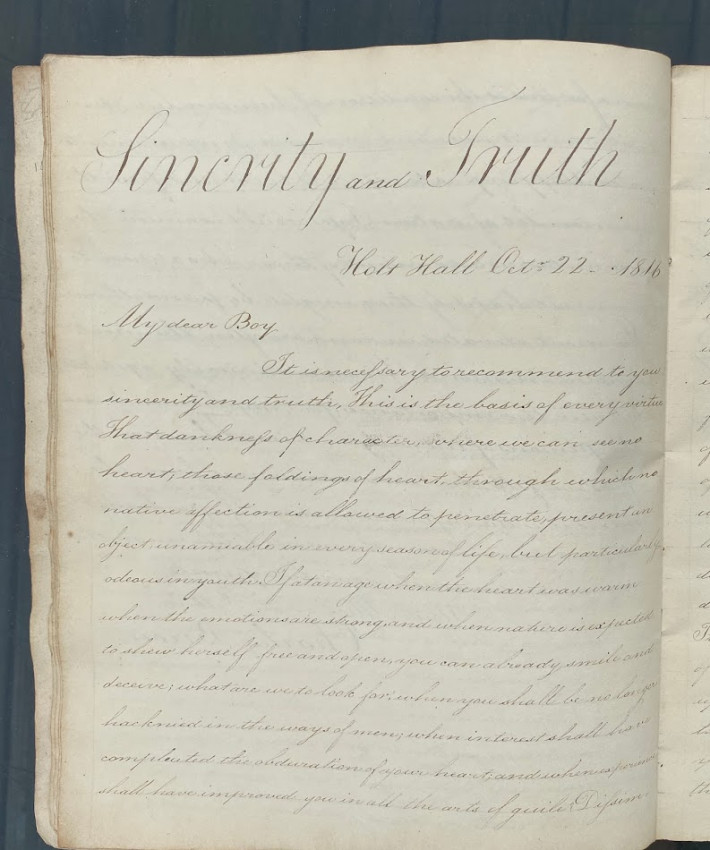 Sincrity and Truth
Holt Hall Octr 22 - 1816
My dear Boy
It is necessary to recommend to you
sincerity and truth, This is the basis of every virtue
That dankness of character, where we can see no
heart; those foldings of heart, through which no
native affection is allowed to penetrate, present an
object unamiable in every season of life, but particularly
odeous in youth If at an age when the heart was warm
when the emotions are strong, and when nature is expected
to shew herself free and open, you can already smile and
deceive; what are we to look for; when you shall be no longer
hacknied in the ways of men; when interest shall have
compleated the obduration of your heart; and when experience
shall have improved you in all the arts of guile; Dissim-